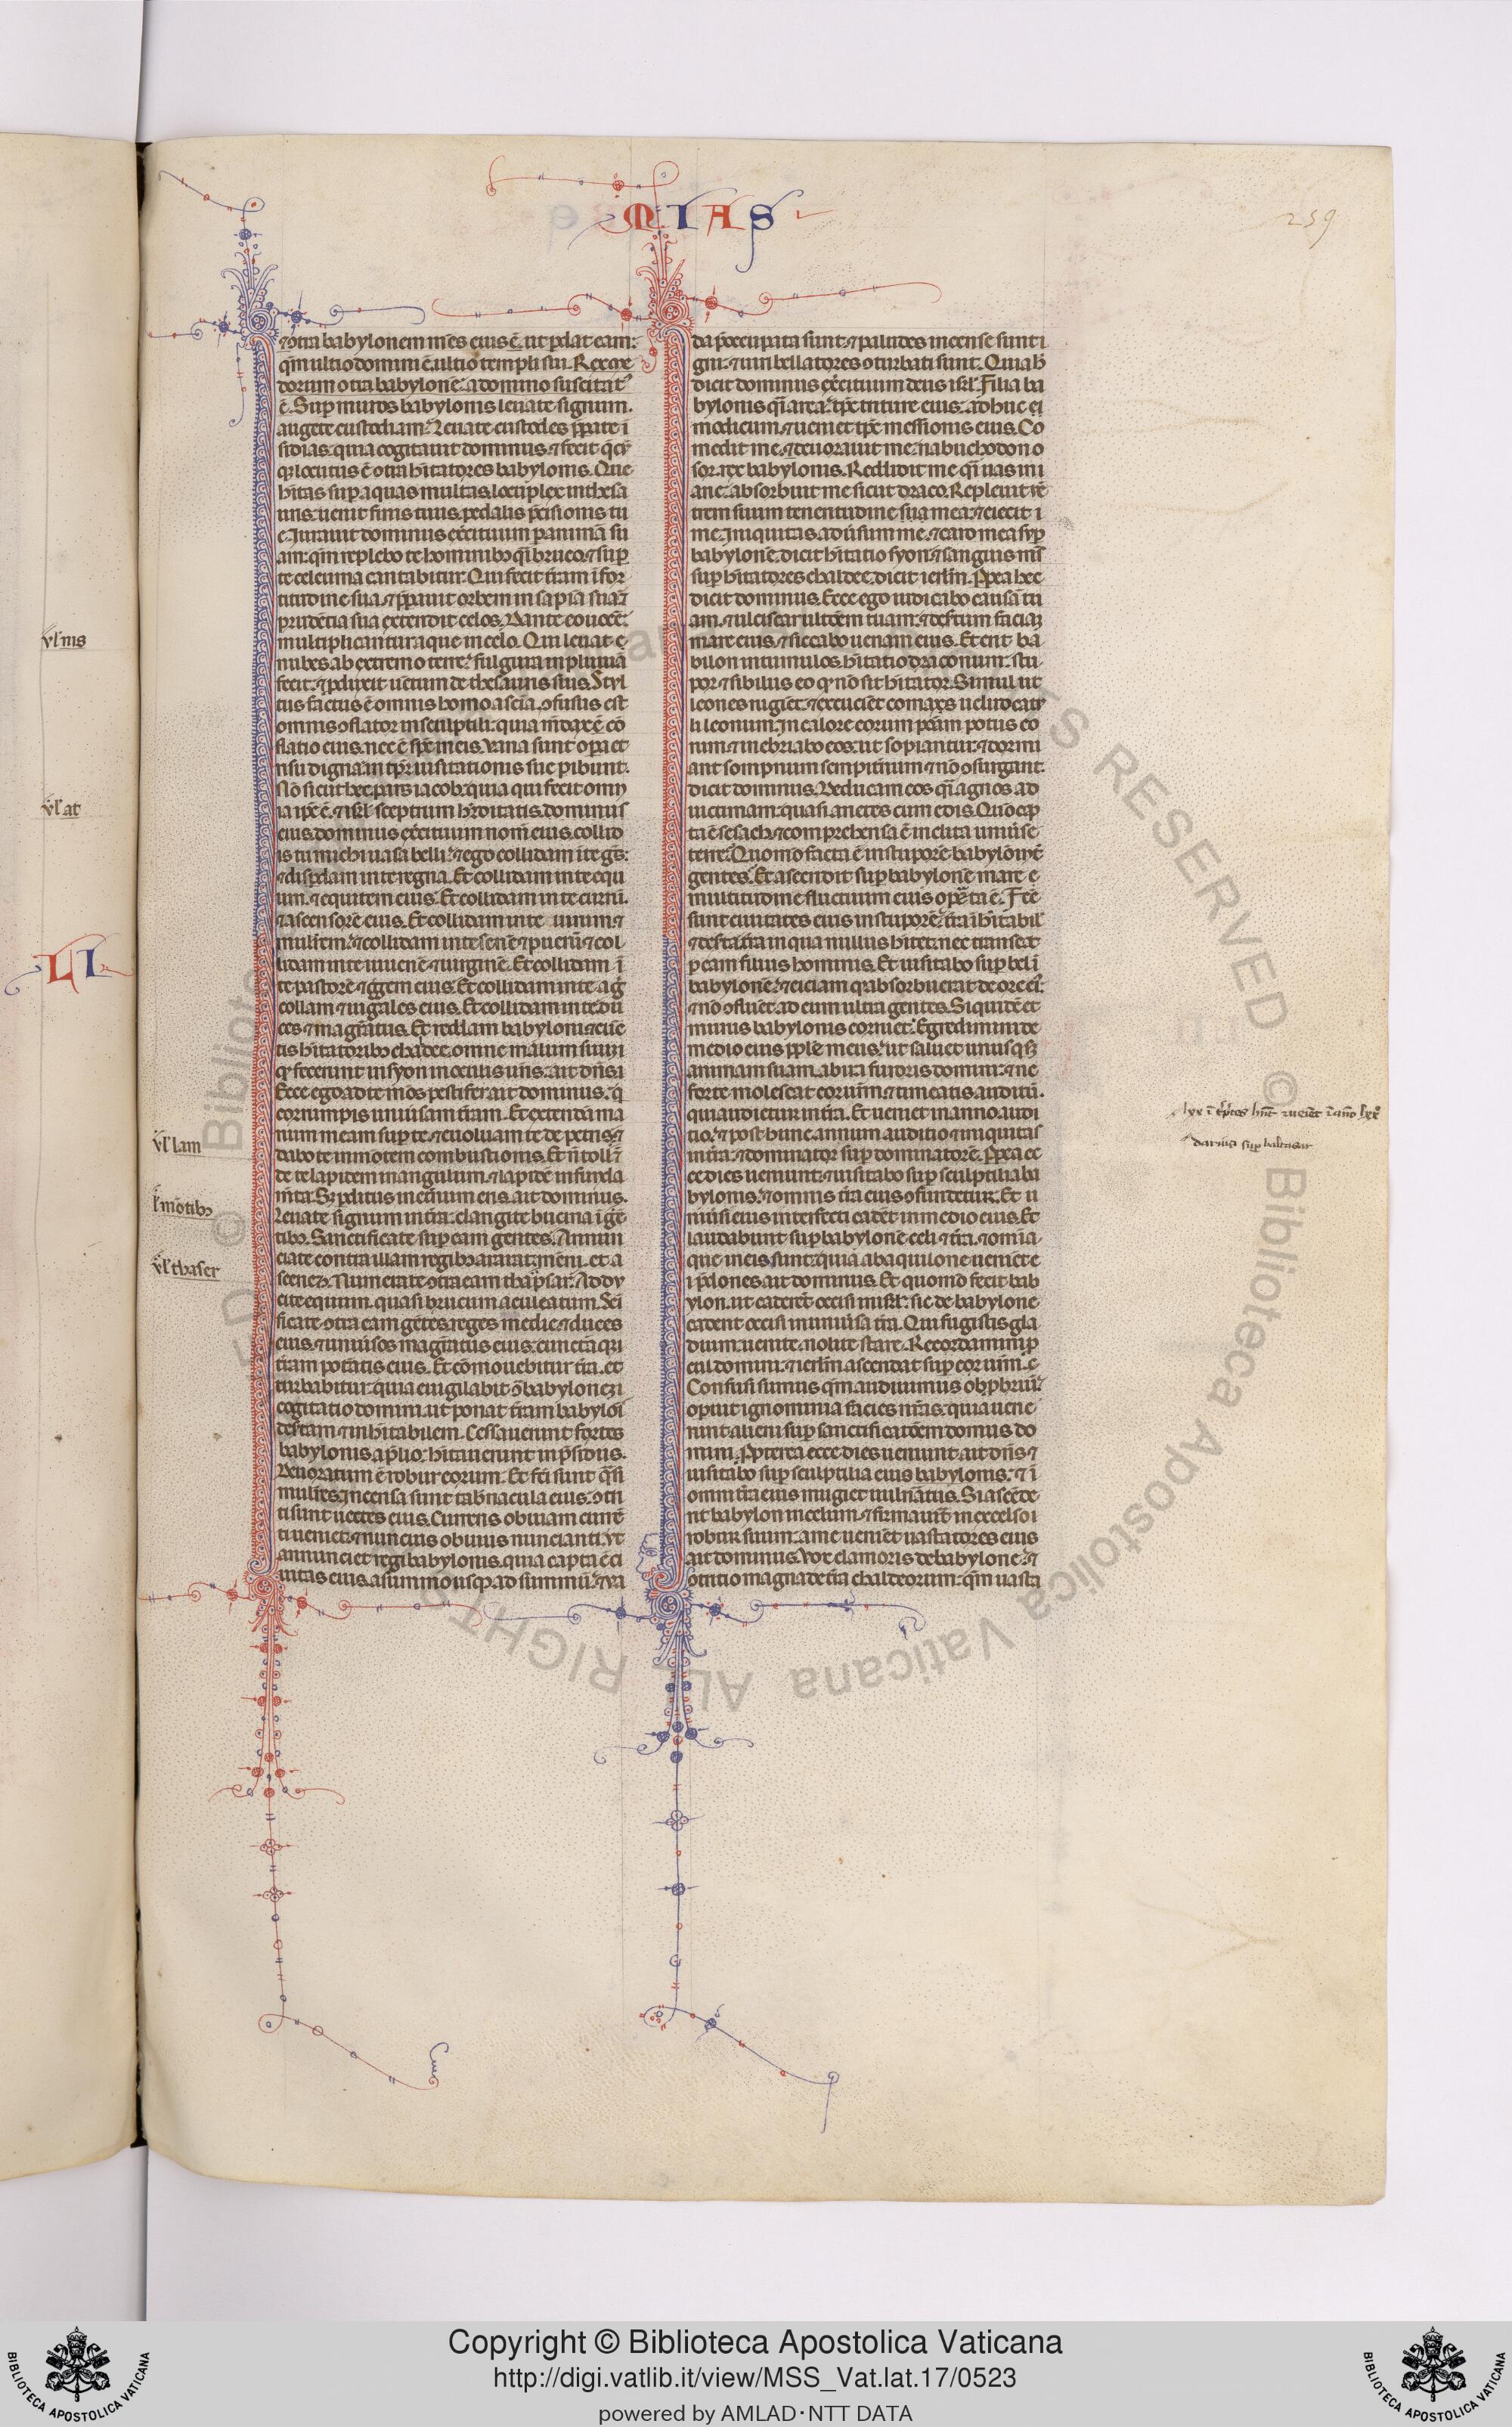 MIAS
259
ɔtra babylonem mēs eius ē. ut ꝑdat eam:
qm̄ ultio domini ē. ultio templi sui. Rex re
dorum ɔtra babylonē. a domino suscitat᷒
ē. Suꝑ muros babylonis leuate signum.
augete custodiam. Leuate custodes p̄ꝑate ī
sidias. quia cogitauit dominus. ⁊ fecit q̄cū
qꝫ locutus ē ɔtra hītatores babylonis. Que
hītas suꝑ aquas multas. locuplex in thesa
uris. uenit finis tuus. pedalis p̄cisionis tu
e. Jurauit dominus exċituum ꝑ animā su
am. qm̄ replebo te hominibꝫ q̄i bruco. ⁊ suꝑ
te celeuma cantabitur. Qui fecit t̄ram ī for
titudine sua. ⁊ p̄ꝑauit orbem in sapīa sua. ⁊
prudētia sua extendit celos. Dante eo uocē.
multiplicantur aque in celo. Qui leuat e
nubes ab extremo terre. fulgura in pluuiā
fecit. ⁊ ꝓduxit uētum de thesauris suis. Styl
tus factus ē omnis homo a scīa. ɔfusus est
omnis ɔflator in sculptili. quia m̄dax ē cō
flatio eius. nec ē spc̄ in eis. Vana sunt oꝑa et
risu digna. in tp̄r uisitationis sue ꝑibunt.
Nō sicut hec pars iacob. quia qui fecit omn
ia ip̄e ē. ⁊ isrl̄ sceptrum hr̄ditatis. dominus
eius. dominus exċituum nom̄ eius. collid
is tu michi uasa belli. ⁊ ego collidam ī te gn̄s:
⁊ disꝑdam in te regna. Et collidam in te equ
um. ⁊ equitem eius. Et collidam in te currū.
⁊ ascensorē eius. Et collidam in te uirum. ⁊
mulierem. ⁊ collidam in te senē ⁊ puerū. ⁊ col
lidam in te iuuenē ⁊ uirginē. Et collidam ī
te pastorē ⁊ gregem eius. Et collidam in te ag̊
collam ⁊ iugales eius. Et collidam in te du
ces ⁊ magrātus. Et reddam babyloni ⁊ cūc
tis hītatoribꝫ chaldee. omne malum suum
qđ fecerunt in syon in oculis ur̄is. ait dn̄s.
Ecce ego ad te mōs pestifer ait dominus. q̇
corrumpis uniūsam t̄ram. Et extendā ma
num meam suꝑ te. ⁊ euoluam te de petris. ⁊
dabo te in motem combustionis. Et n̄ toll̄t
de te lapidem in angulum. ⁊ lapidē in funda
m̄ta. Sꝫ ꝑditus in eternum eris. ait dominus.
Leuate signum in t̄ra. clangite bucina ī gē
tibꝫ. Sanctificate suꝑ eam gentes. Annun
ciate contra illam regibꝫ ararat. mēni. et a
scenez. Numerate ɔtra eam thapsar. Addu
cite equum. quasi brucum aculeatum. Sc̄i
ficate ɔtra eam gētes. reges medie. ⁊ duces
eius. ⁊ uniūsos magrātus eius. cunctā qꝫ
t̄ram potātis eius. Et cōmouebitur t̄ra. et
turbabitur. quia euigilabit ɔ̄ babylonē
cogitatio domini. ut ponat t̄ram babylōi
desertam ⁊ inhītabilem. Cessauerunt fortes
babylonis a p̄lio. hītauerunt in p̄sidiis.
Deuoratum ē robur eorum. Et fc̄i sunt q̄si
mulieres. Incensa sunt tab̄nacula eius. ɔtri
ti sunt uectes eius. Currens obuiam currē
ti ueniet. ⁊ nuncius obuius nuncianti. Ut
annunciet regi babylonis. quia capta ē ci
uitas eius. a summo usqꝫ ad summū. ⁊ ua
da p̄occupata sunt. ⁊ paludes incense sunt i
gni. ⁊ uiri bellatores ɔturbati sunt. Quia h̄
dicit dominus exċituum deus isrl̄. Filia ba
bylonis q̄i area. tp̄e triture eius. adhuc
modicum. ⁊ ueniet tp̄e messionis eius. Co
medit me. ⁊ deuorauit me. nabuchodono
sor rex babylonis. Reddidit me q̄i uas in
ane. absorbuit me sicut draco. Repleuit ue
trem suum teneritudine sua mea. ⁊ eiecit ī
me. Iniquitas aduūsum me. ⁊ caro mea sup
babylonē. dicit hītatio syon. ⁊ sanguis m̄s
suꝑ hītatores chaldee. dicit ierlm̄. Ppea hec
dicit dominus. Ecce ego iudicabo causā tu
am. ⁊ ulciscar ultōem tuam. ⁊ desertum faciaꝫ
mare eius. ⁊ siccabo uenam eius. Et erit ba
bilon in tumulos. hītatio draconum. stu
por ⁊ sibilus eo qđ nō sit hītator. Simul ut
leones rugiēt. ⁊ excucient comas ueluti catu
li leonum. In calore eorum ponam potus eo
rum. ⁊ inebriabo eos. ut sopiantur. ⁊ dormi
ant sompnum sempiternum ⁊ nō ɔsurgant.
dicit dominus. Deducam eos q̄i agnos ad
uictimam. quasi arietes cum edis. Quō cap
ta ē sesach. ⁊ comprehensa ē inclita uniūse
terre. Quomō facta ē in stuporē babylon īt
gentes. Et ascendit suꝑ babylonē mare. e
multitudine fluctuum eius oꝑta ē. Fc̄e
sunt ciuitates eius in stuporē. t̄ra īhītabil̄
⁊ deserta. t̄ra in qua nullus hītet. nec transeat
ꝑ eam filius hominis. Et uisitabo suꝑ bel ī
babylonē. ⁊ eiciam qđ absorbuerat de ore ei᷒.
⁊ nō ɔfluēt ad eum ultra gentes. Siquidē et
murus babylonis corruet. Egredimini de
medio eius pp̄le meus. ut saluet unusqsꝫ
animam suam. ab ira furoris domini. ⁊ ne
forte molescat cor urm̄. ⁊ timeatis auditū.
qui audietur in t̄ra. Et ueniet in anno audi
tio. ⁊ post hunc annum auditio. ⁊ iniquitas
in t̄ra. ⁊ dominator suꝑ dominatorē. Ppea ec
ce dies ueniunt. ⁊ uisitabo suꝑ sculptilia ba
bylonis. ⁊ omnis t̄ra eius ɔfundetur. Et u
niūsi eius interfecti cadēt in medio eius. Et
laudabunt suꝑ babylonē celi ⁊ t̄ra. ⁊ omīa
que in eis sunt. quia ab aquilone ueniēt e
i p̄dones ait dominus. Et quomō fecit bab
ylon. ut caderēt occisi in isrl̄. sic de babylone
cadent occisi in uniūsa t̄ra. Qui fugistis gla
dium. uenite. nolite stare. Recordamini ꝓ
cul domini. ⁊ ierlm̄ ascendat suꝑ cor urm̄.
Confusi sumus qm̄ audiuimus obꝓbriū.
oꝑuit ignominia facies nr̄as. quia uene
runt alieni suꝑ sanctificatōem domus do
mini. Ppterea ecce dies ueniunt. ait dn̄s. ⁊
uisitabo suꝑ sculptilia eius babylonis. ⁊ ī
omni t̄ra eius mugiet uuln̄atus. Si ascēde
rit babylon in celum. ⁊ firmauit in excelso
robur suum. a me uenient uastatores eius
ait dominus. Vox clamoris de babylone. ⁊
ɔtritio magna de t̄ra chaldeorum. qm̄ uasta
ul' ms
ul' at
LI
ul' lam
l' mōtibꝫ
ul' thaser
darius suꝑ baltasar
Copyright © Biblioteca Apostolica Vaticana
http://digi.vatlib.it/view/MSS_Vat.lat.17/0523
powered by AMLAD·NTT DATA
BIBLIOTECA APOSTOLICA VATICANA
BIBLIOTECA APOSTOLICA VATICANA
© Biblioteca Apostolica Vaticana ALL RIGHTS RESERVED